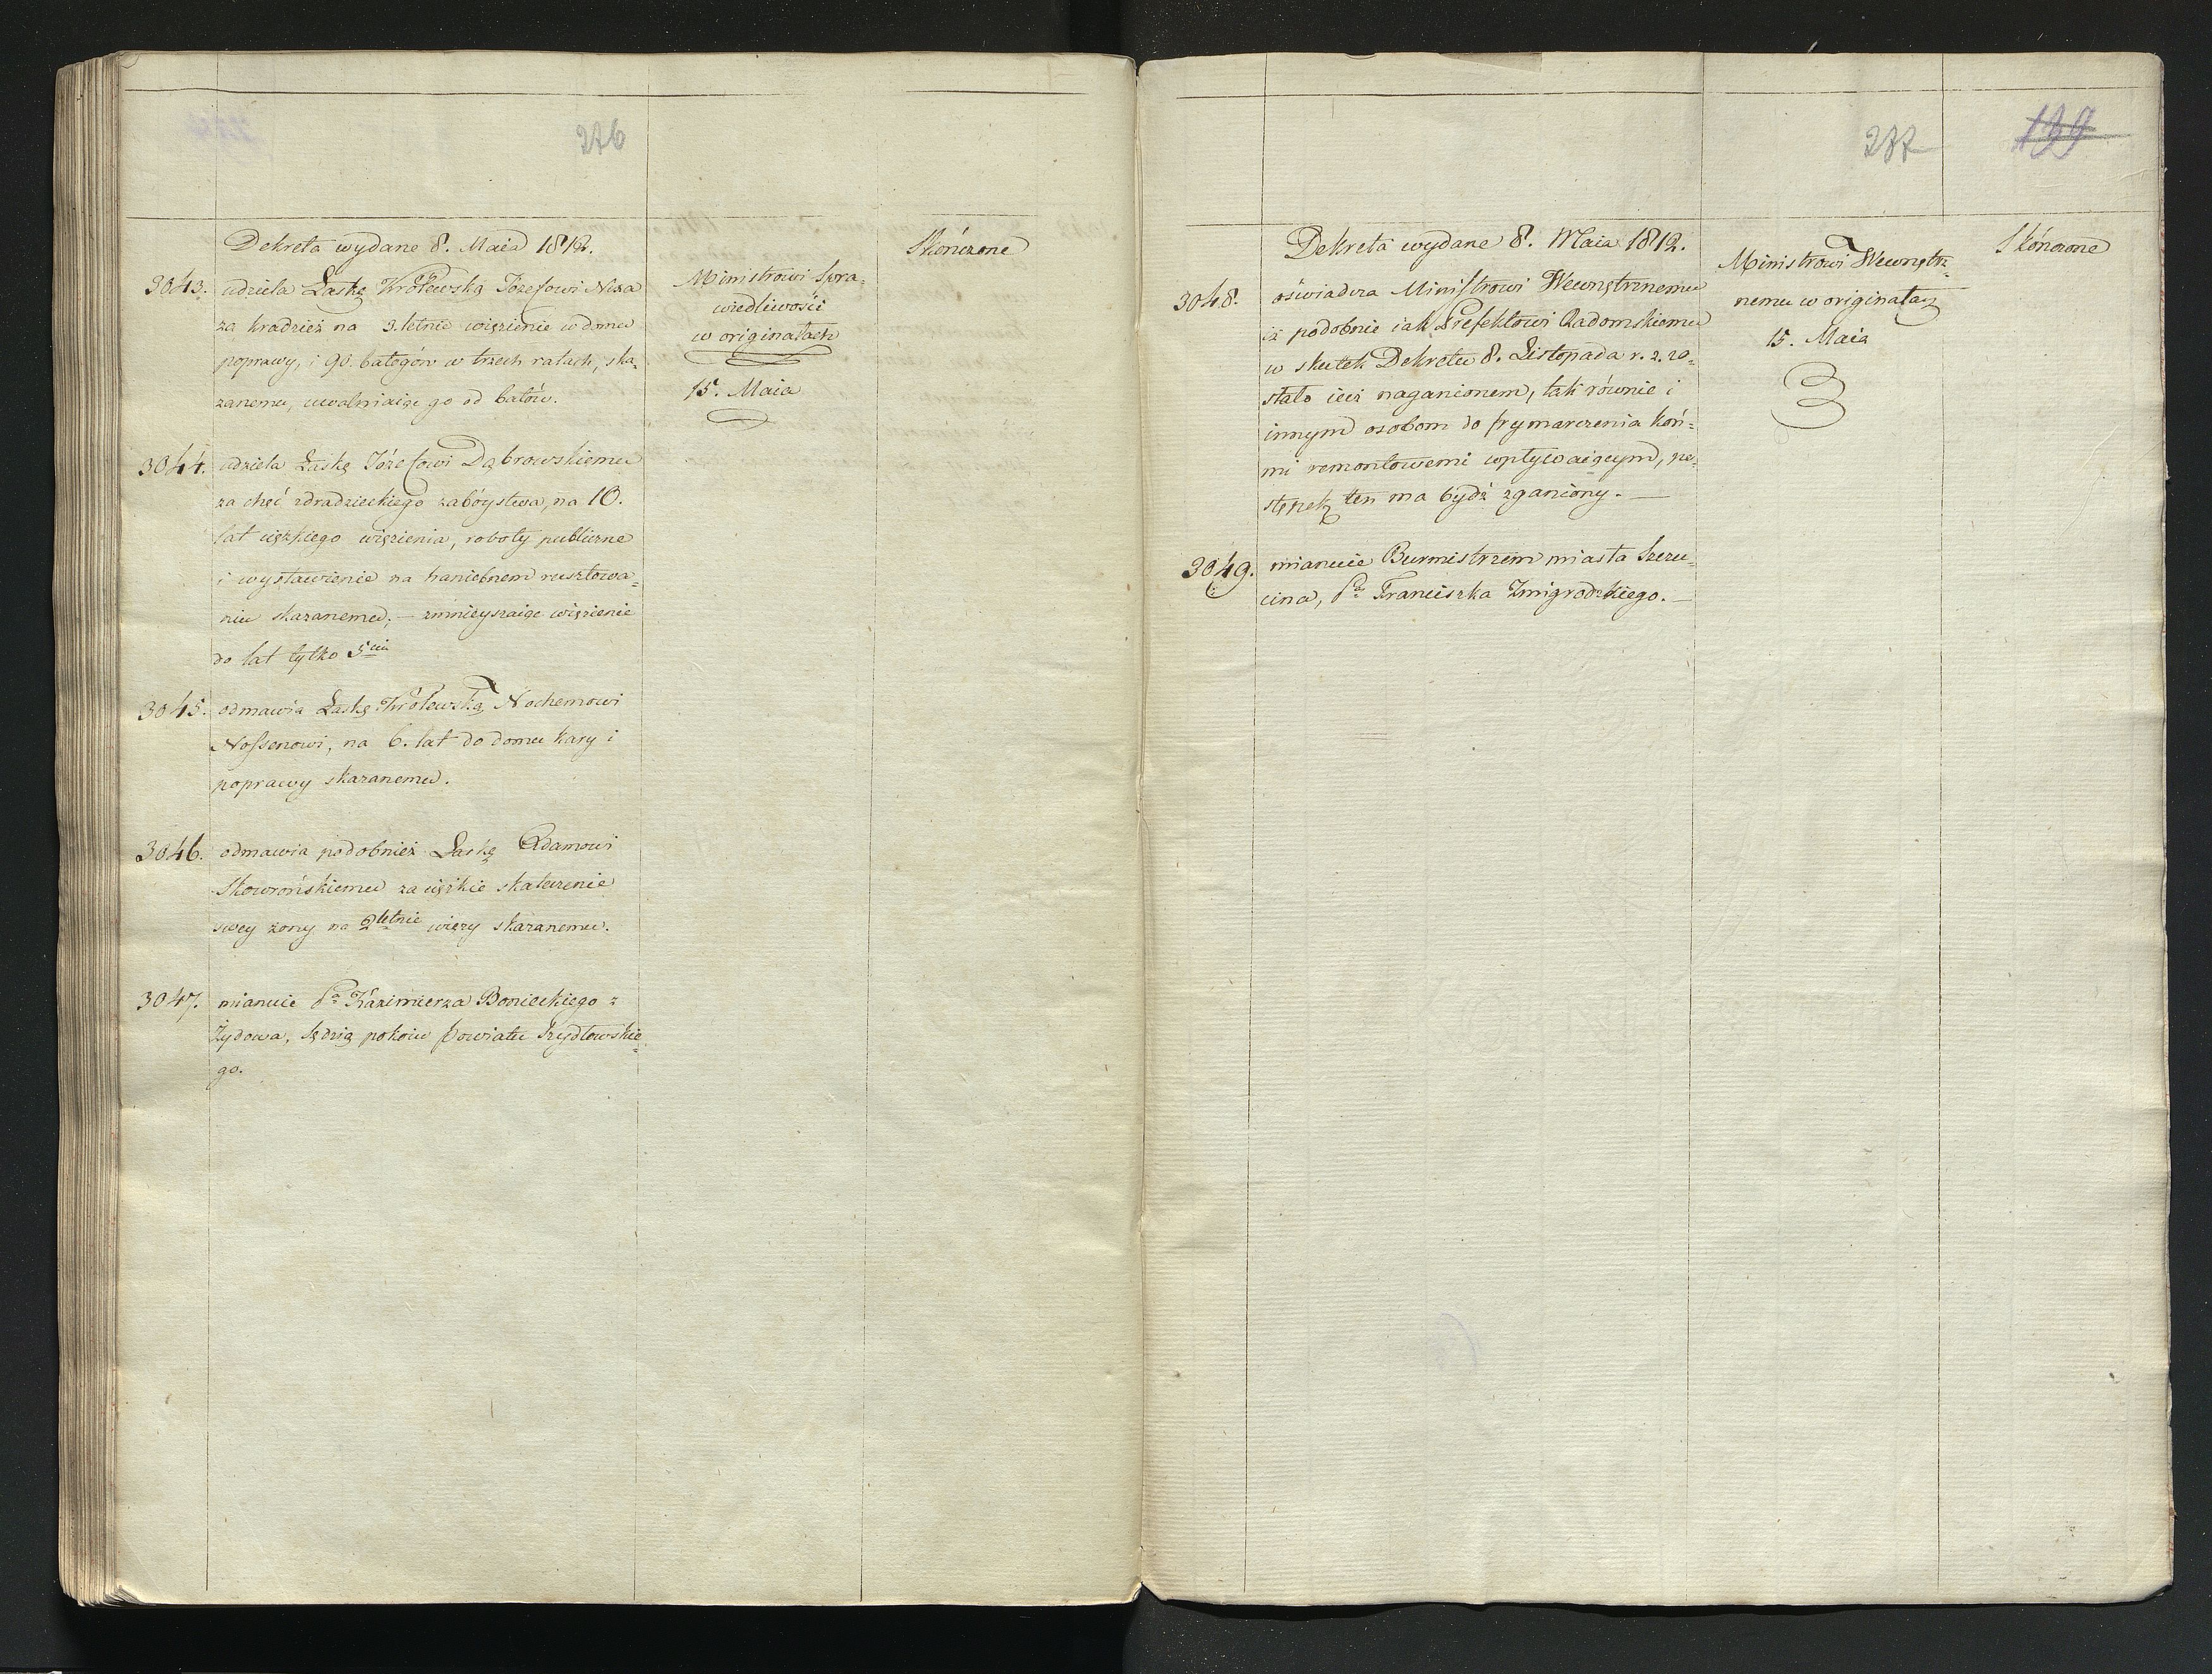 276
Dekreta wydane 8. Maia 1812.
3043. udziela Łaskę Królewską Józefowi Nesa
za kradzież na 3. letnie więzienie w domu
poprawy, i 90. batogów w trzech ratach, ska=
zanemu, uwalniaiąc go od batów.
Ministrowi Spra=
wiedliwości
w originałach
15. Maia
Skończone
3044. udziela Łaskę Józefowi Dąbrowskiemu
za chęć zdradzieckiego zabóystwa, na 10.
lat ciężkiego więzienia, roboty publiczne
i wystawienie na haniebnem rusztowa=
niu skazanemu; — zmnieyszaiąc więzienie
do lat tylko 5ciu
3045. odmawia Łaskę Królewską Nochemowi
Nossenowi, na 6. lat do domu kary i
poprawy skazanemu.
3046. odmawia podobnież Łaskę Adamowi
Skowrońskiemu za ciężkie skaleczenie
swey żony na 2letnie więzy skazanemu.
3047. mianuie Pa Kazimierza Bonieckiego z
Żydowa, Sędzią pokoiu powiatu Szydłowskie=
go.
277
139
Dekreta wydane 8. Maia 1812.
3048. oświadcza Ministrowi Wewnętrznemu
iż podobnie iak Prefektowi Radomskiemu
w skutek Dekretu 8. Listopada r. z. zo=
stało iuż naganionem, tak równie i
innym osobom do frymarczenia koń=
mi remontowemi wpływaiącym, po=
stępek ten ma bydź zganiony. —
Ministrowi Wewnętrz=
nemu w originałach
15. Maia
Skończone
3049. mianuie Burmistrzem miasta Szczu=
cina, Pa Franciszka Zmigrodzkiego. —